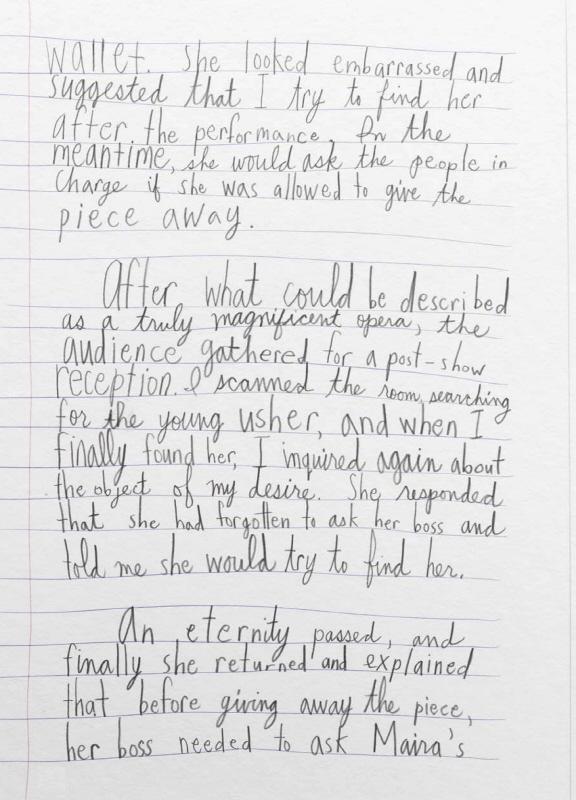 wallet. She looked embarrassed and
suggested that I try to find her
after the performance. In the
meantime, she would ask the people in
Charge if she was allowed to give the
piece away.
After what could be described
as a truly magnificent opera, the
audience gathered for a post-show
reception. I scanned the room, searching
for the young usher, and when I
finally found her, I inquired again about
the object of my desire. She responded
that she had forgotten to ask her boss and
told me she would try to find her.
An eternity passed, and
finally she returned and explained
that before giving away the piece,
her boss needed to ask Maira's